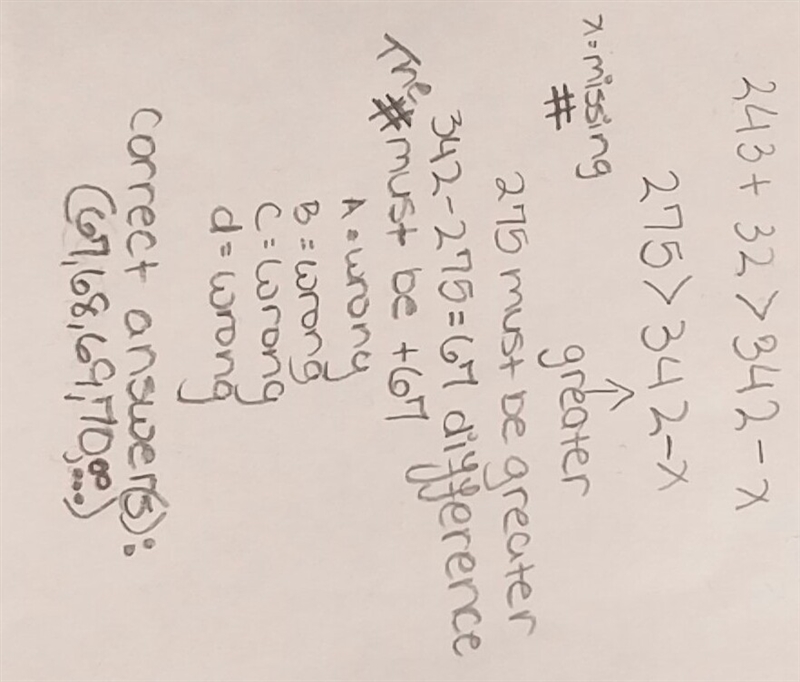 243 + 32 > 342 - x
x = missing #
275 > 342 - x
↑
greater
275 must be greater
342 - 275 = 67 difference
The # must be + 67
A = wrong
B = wrong
C = wrong
d = wrong
correct answer(s):
(67,68,69,70,∞,...)